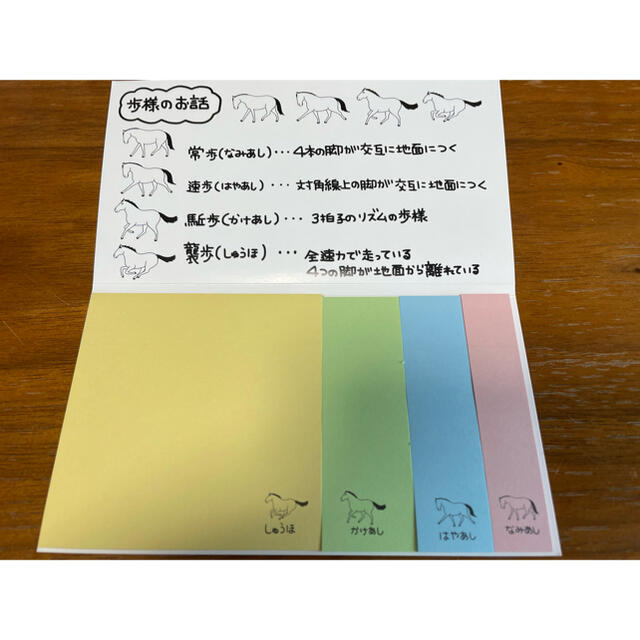 歩様のお話
常歩(なみあし)･･･4本の脚が交互に地面につく
速歩(はやあし)･･･対角線上の脚が交互に地面につく
駈歩(かけあし)･･･3拍子のリズムの歩様
襲歩(しゅうほ)･･･全速力で走っている
4つの脚が地面から離れている
しゅうほ
かけあし
はやあし
なみあし